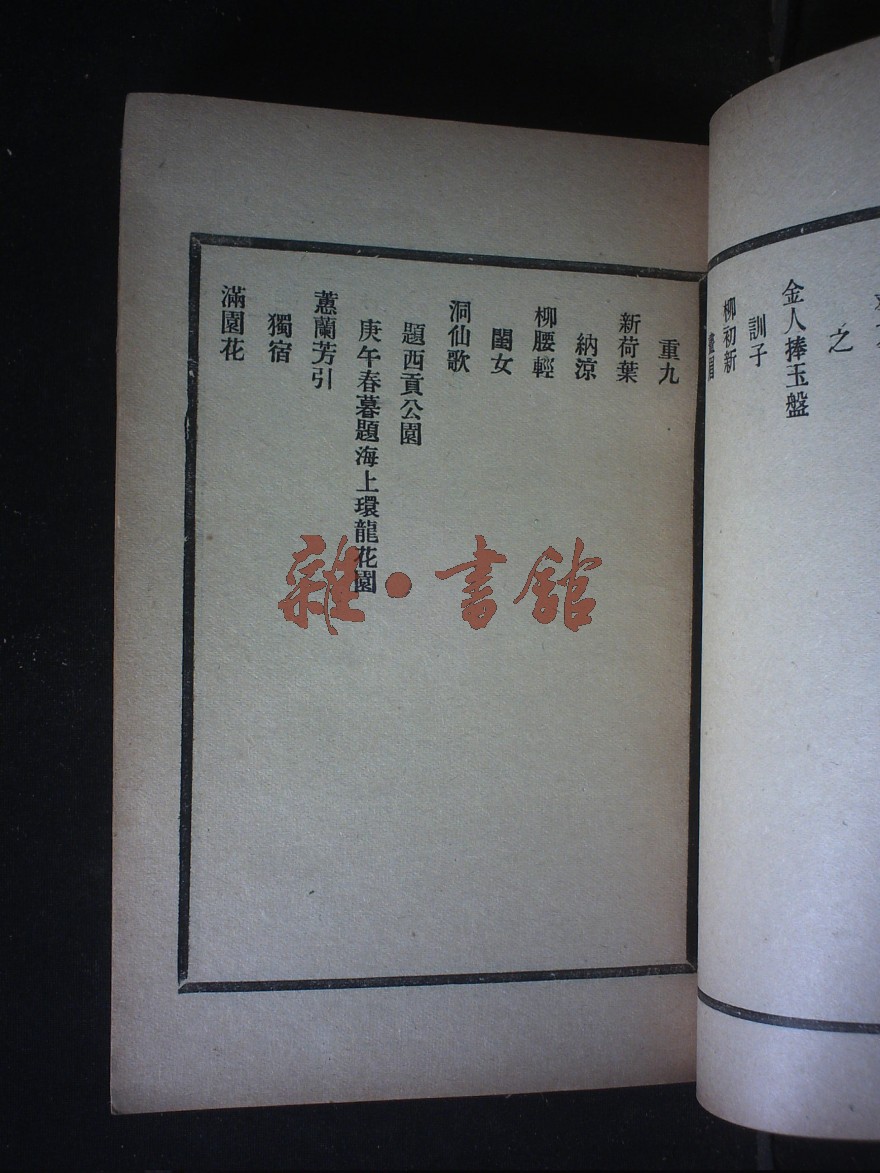 之
金人捧玉盤
訓子
柳初新
重九
新荷葉
納涼
柳腰輕
閨女
洞仙歌
題西貢公園
庚午春暮題海上環龍花園
蕙蘭芳引
獨宿
滿園花
雜·書館